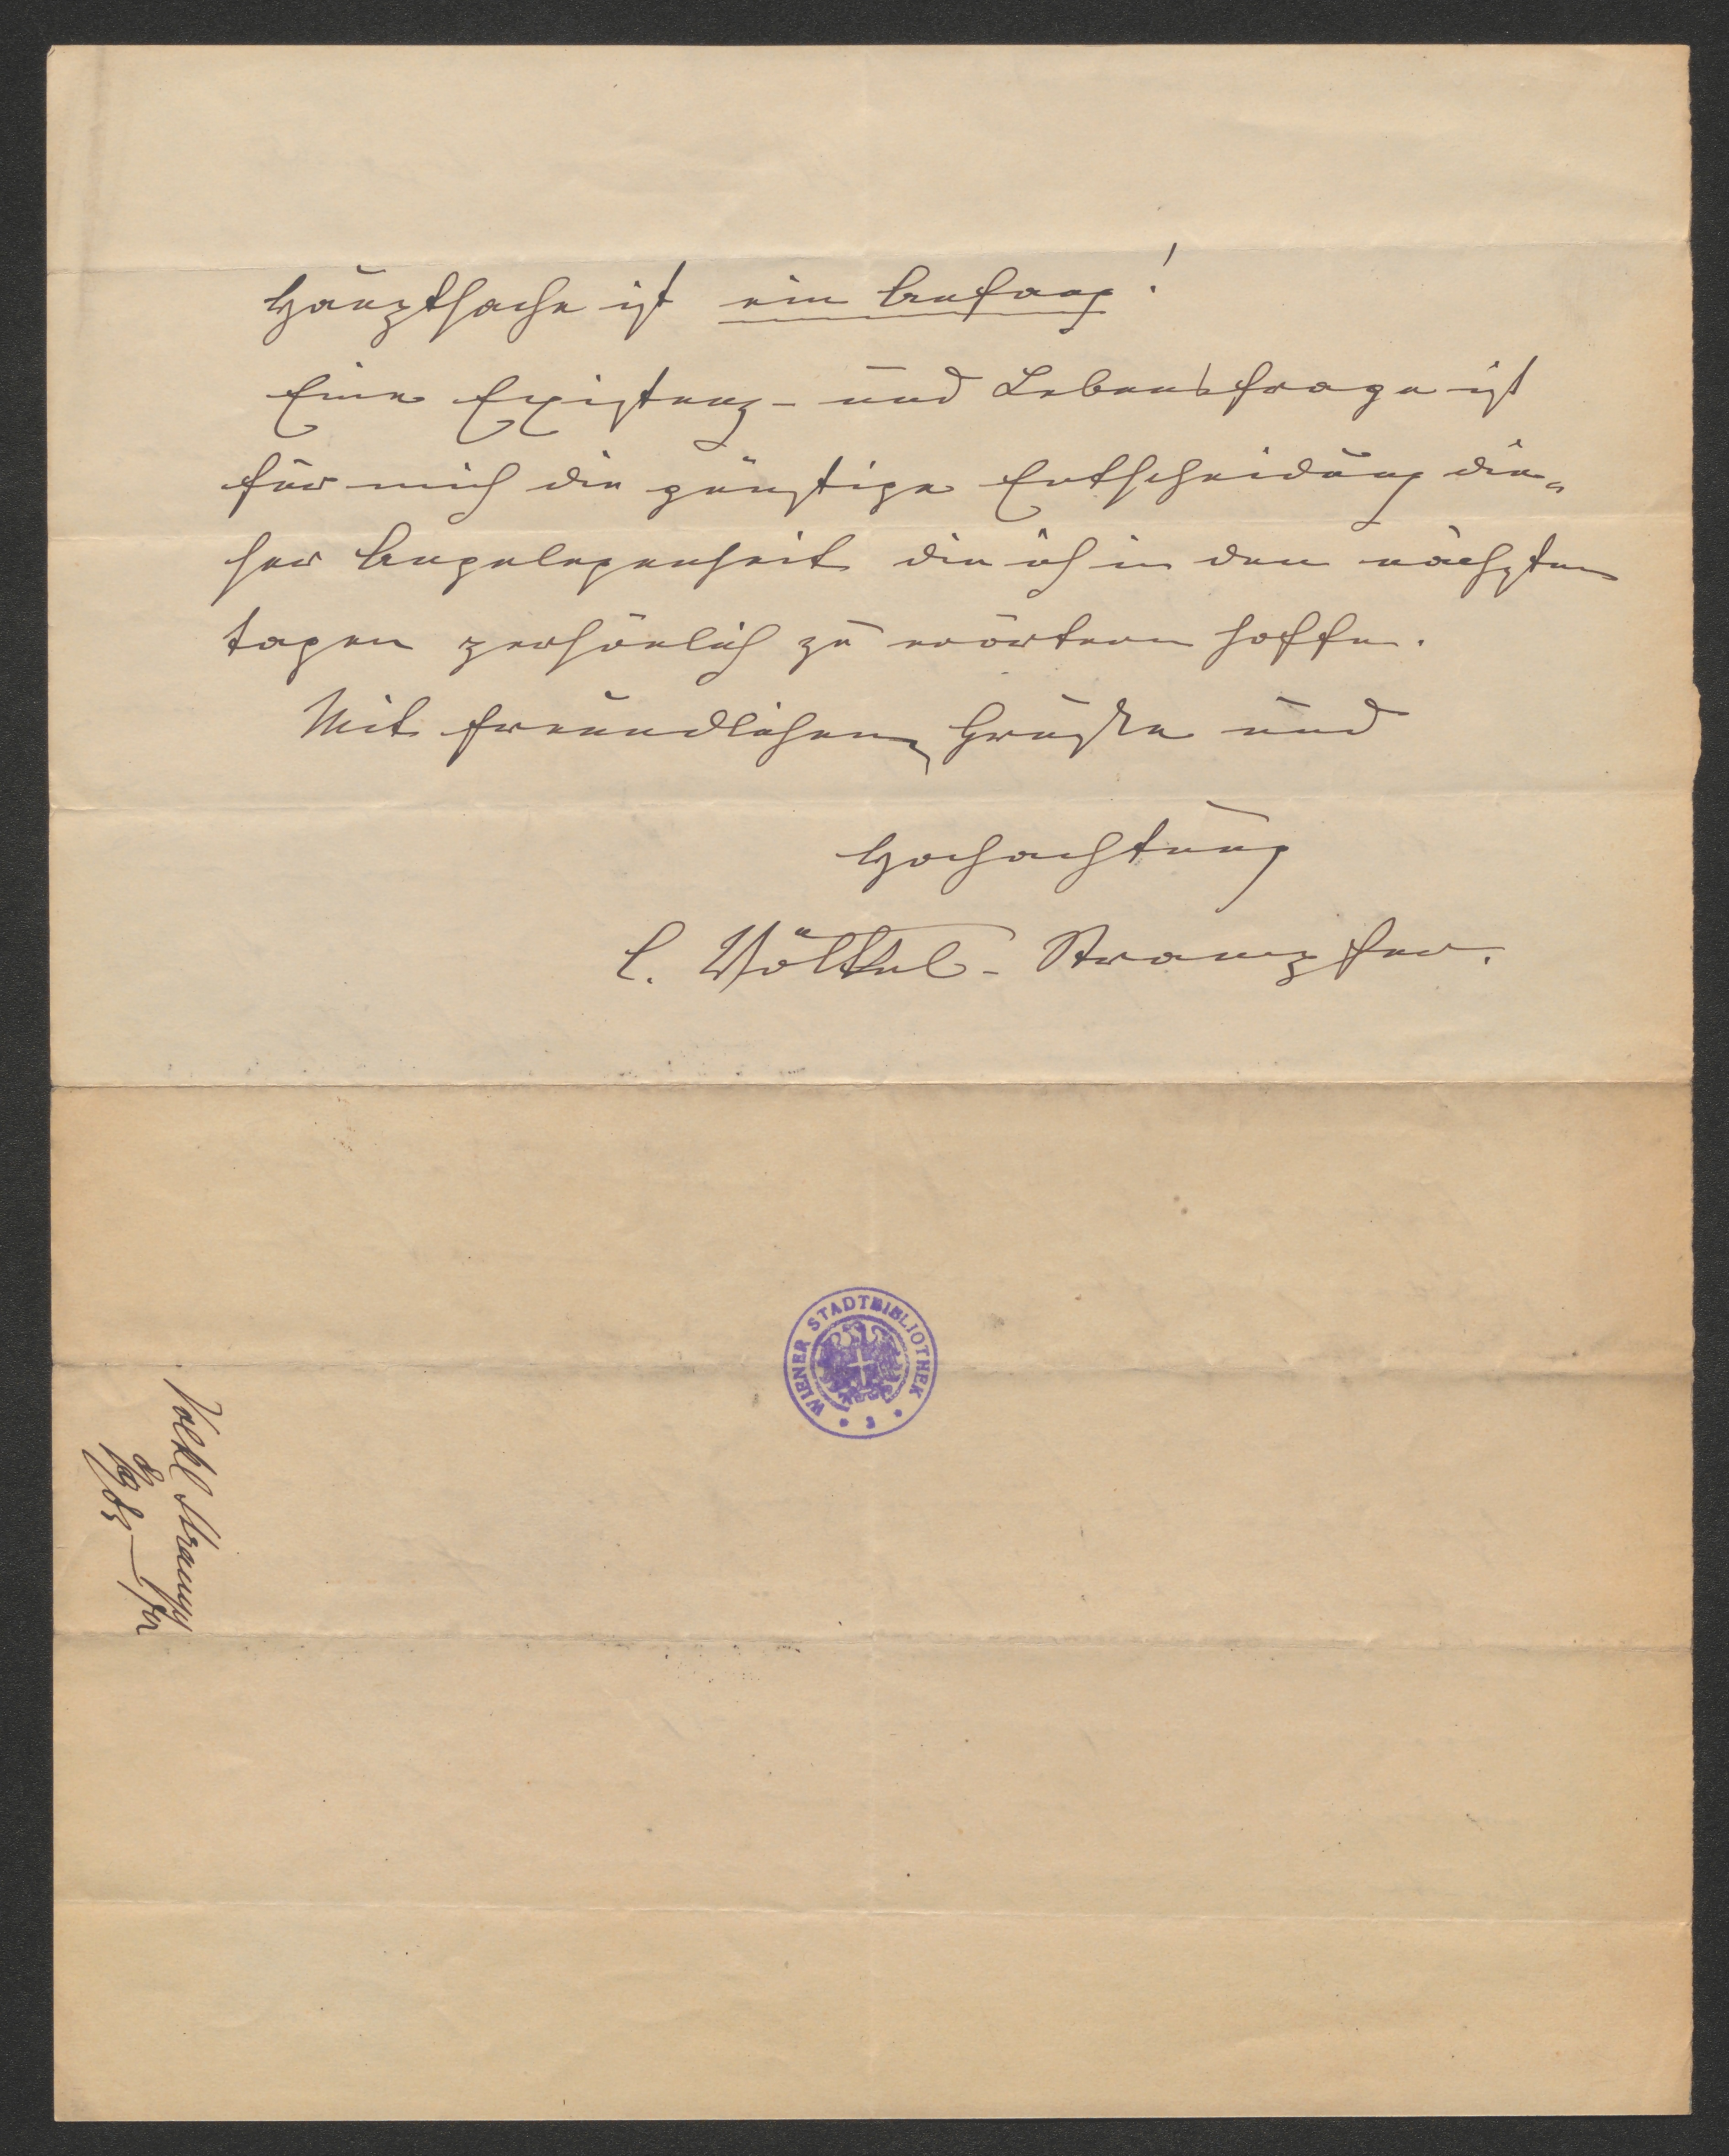 Hauptsache ist ein Anfang!
Eine Existenz- und Lebensfrage ist
für mich die günstige Entscheidung die„
ser Angelegenheit die ich in den nächsten
tagen persönlich zu erörtern hoffe.
Mit freundlichem Gruße und
Hochachtung
C. Völkel-Strampfer.
WIENER STADTBIBLIOTHEK
Völkl Strampf